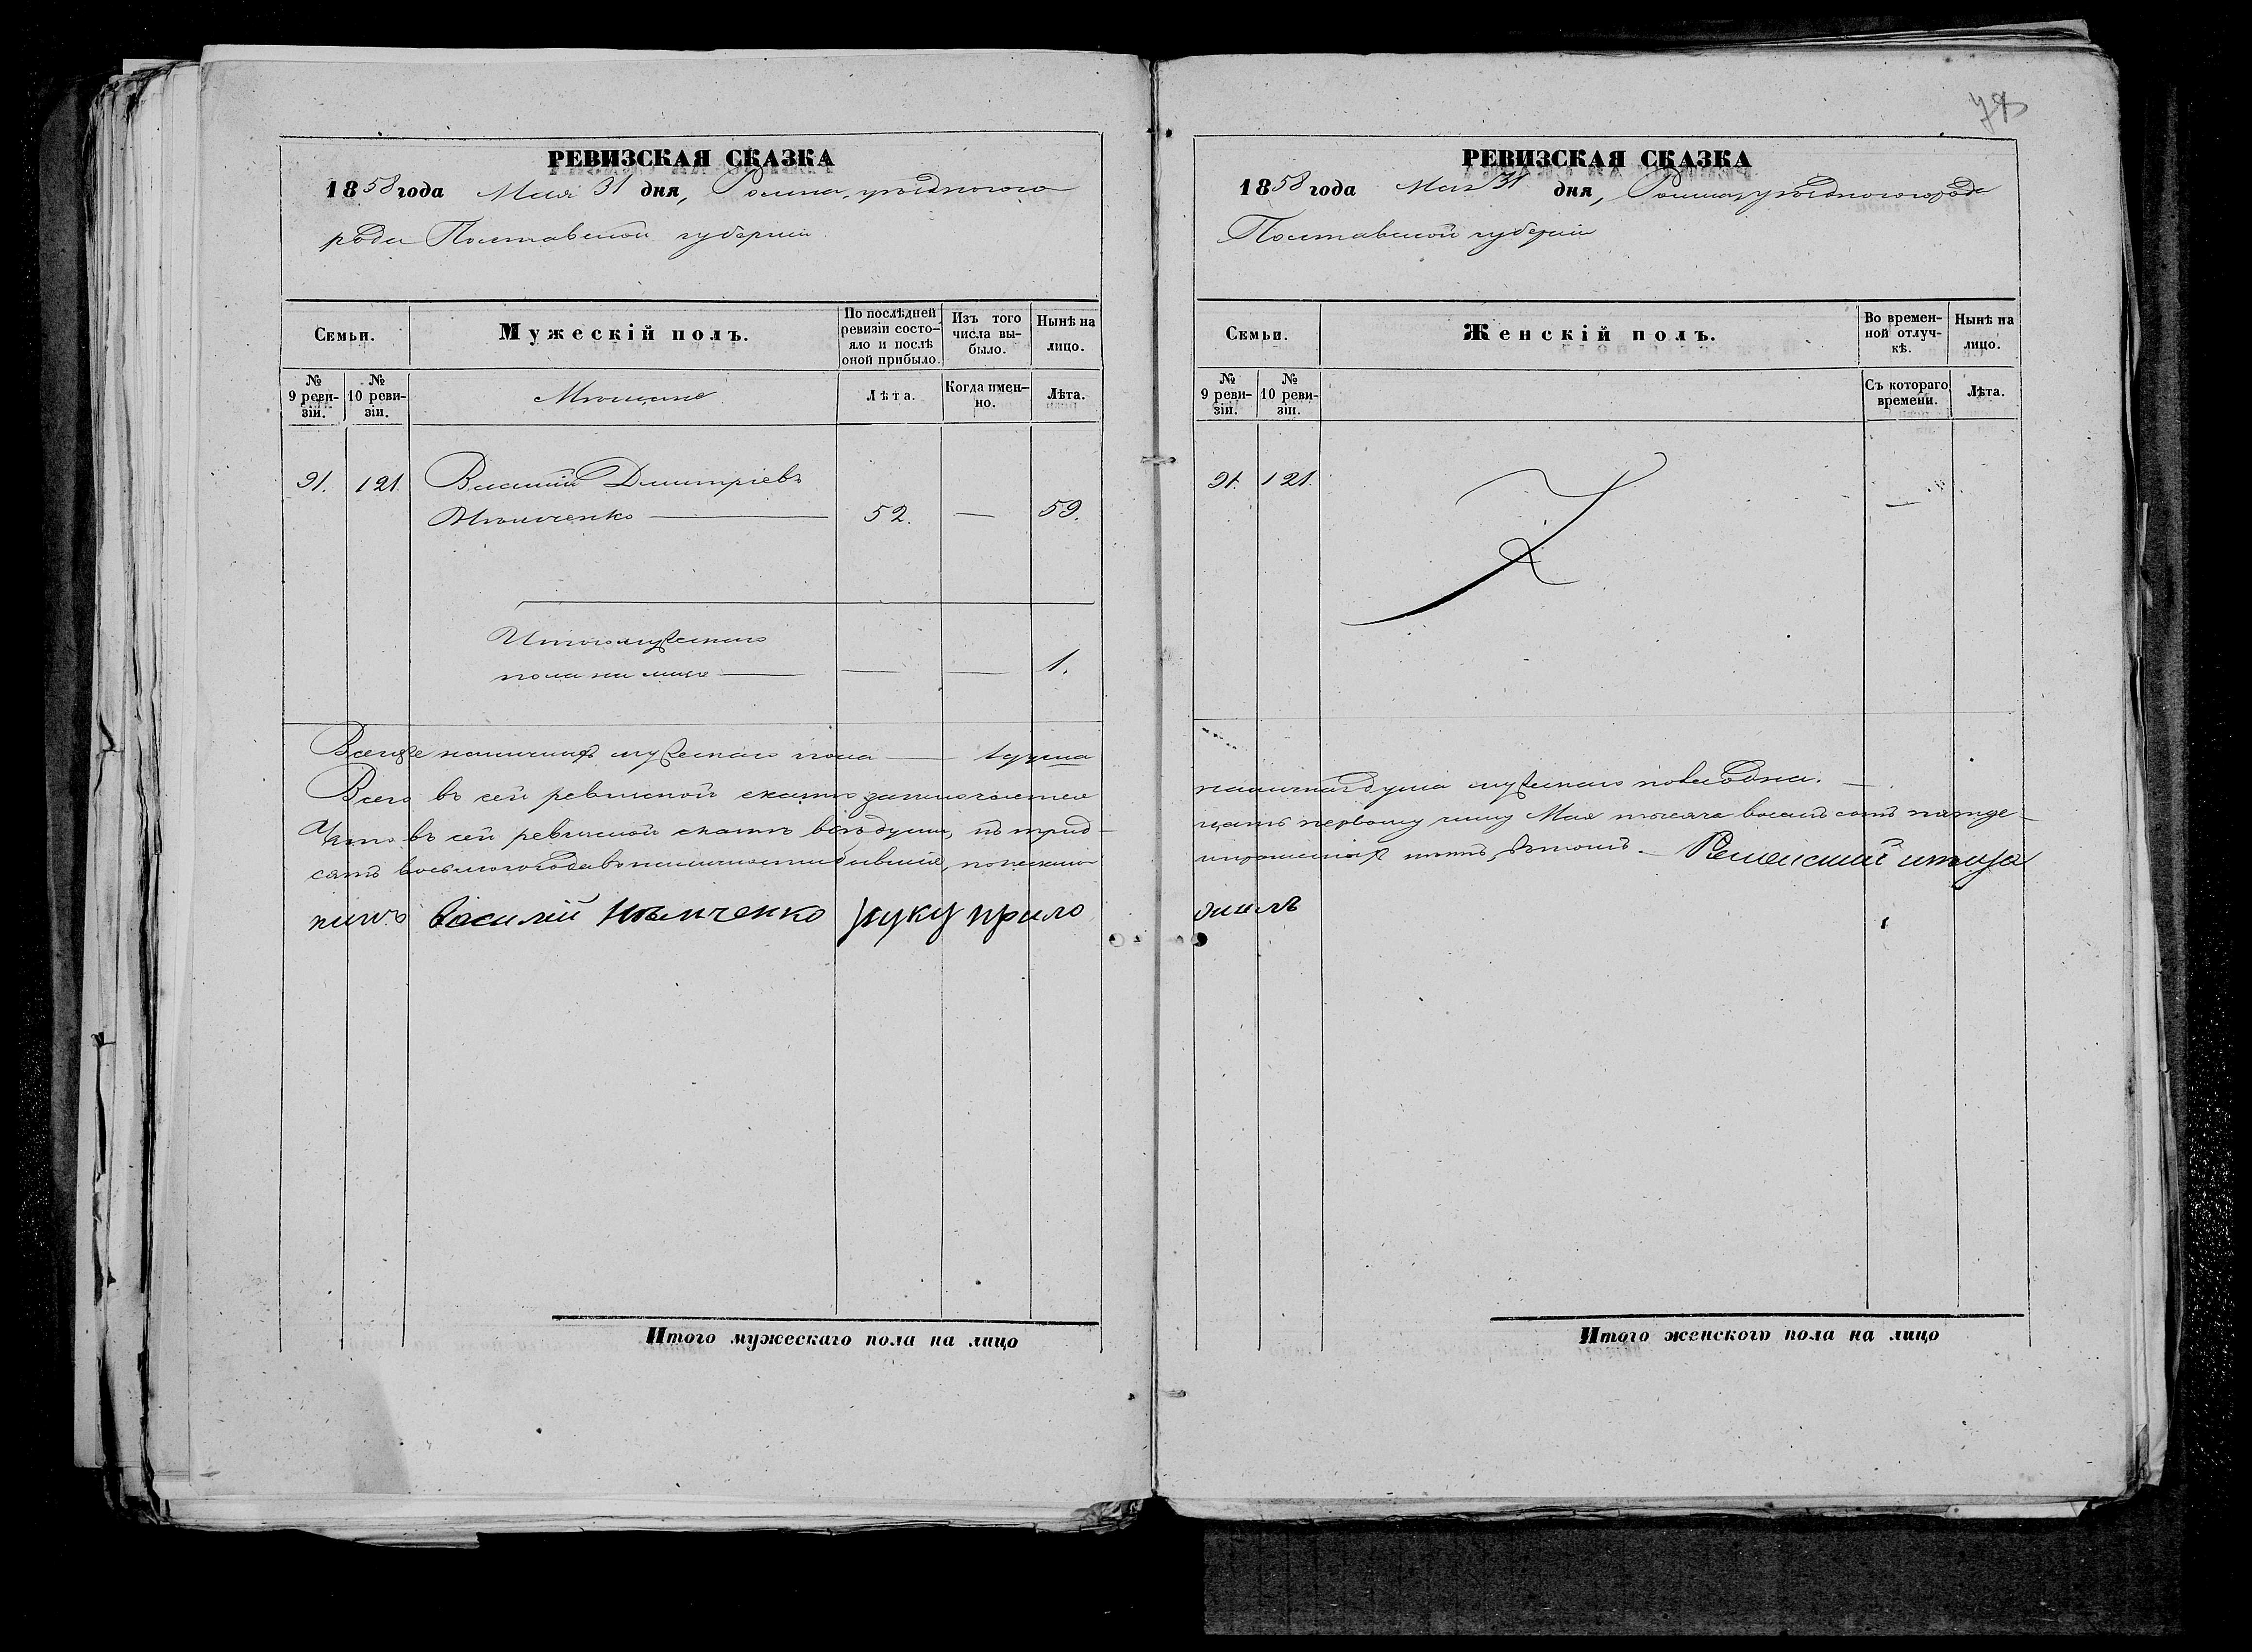 РЕВИЗСКАЯ СКАЗКА
1858 года Мая 31 дня, Ромна, уѣзднаго го
рода Полтавской губерніи
Семьи.
Мужескій полъ.
По послѣдней ревизіи состо-
яло и послѣ оной прибыло.
Изъ того числа вы-
было.
Нынѣ на лицо.
№ 9 реви-
зіи.
№ 10 реви-
зіи.
Мѣщане
Лѣта.
Когда имен-
но.
Лѣта.
91. 121. Василій Дмитріевъ
Нѣмченко 52. — 59.
Итого мужескаго
пола на лицо — — — 1.
Всего же наличныхъ мужескаго пола — 1 душа
Всего въ сей ревизской сказкѣ заключается
Что въ сей ревизской сказкѣ всѣ души, къ трид-
сятъ восьмого года въ наличности бывшія, показаны
нинъ Василій Нѣмченко руку прило
Итого мужескаго пола на лицо
78
РЕВИЗСКАЯ СКАЗКА
1858 года Мая 31 дня, Ромна, уѣзднаго города
Полтавской губерніи
Семьи.
Женскій полъ.
Во времен-
ной отлуч-
кѣ.
Нынѣ на лицо.
№ 9 реви-
зіи.
№ 10 реви-
зіи.
Съ котораго времени.
Лѣта.
91. 121. —
наличная душа мужескаго пола одна. —
цать первому числу Мая тысяча восемь сотъ пятьде-
въ томъ. — Роменскій мѣща
жилъ
Итого женского пола на лицо